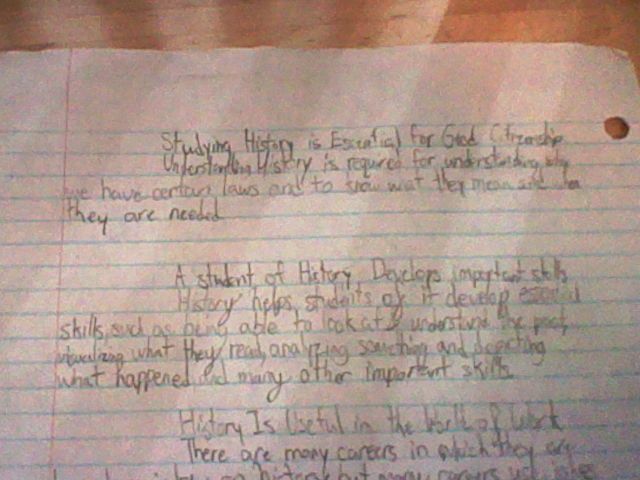 Studying History is Essential for Good Citizenship
Understanding History is required for understanding why
we have certain laws and to know wat they mean and when
they are needed
A student of History Develops important skills
History helps students of it develop essential
skills, such as being able to look at & understand the past,
visualizing what they read, analyzing something and depicting
what happened and many other important skills.
History Is Useful in the World of Work
There are many careers in which they are
history but many careers use